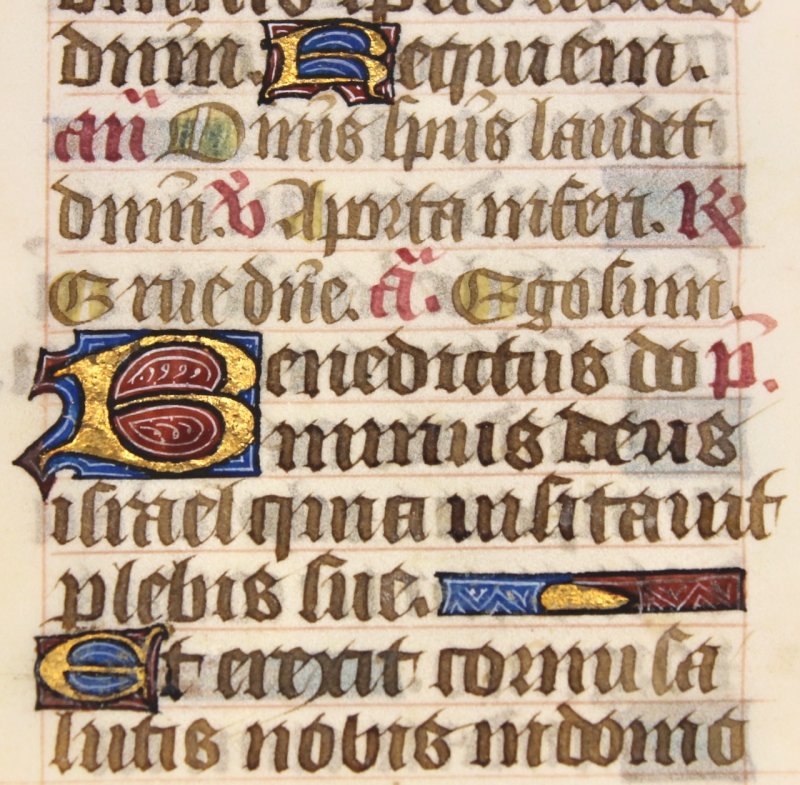 dnm̄. Requiem.
an̄ Om̄is spūs laudet
dnm̄. V̄ A porta inferi. R
Erue dn̄e. ā. Ego sum.
Benedictus do p̄s.
minus deus
israel quia uisitauit
plebis sue.
Et erexit cornu sa
lutis nobis indomo